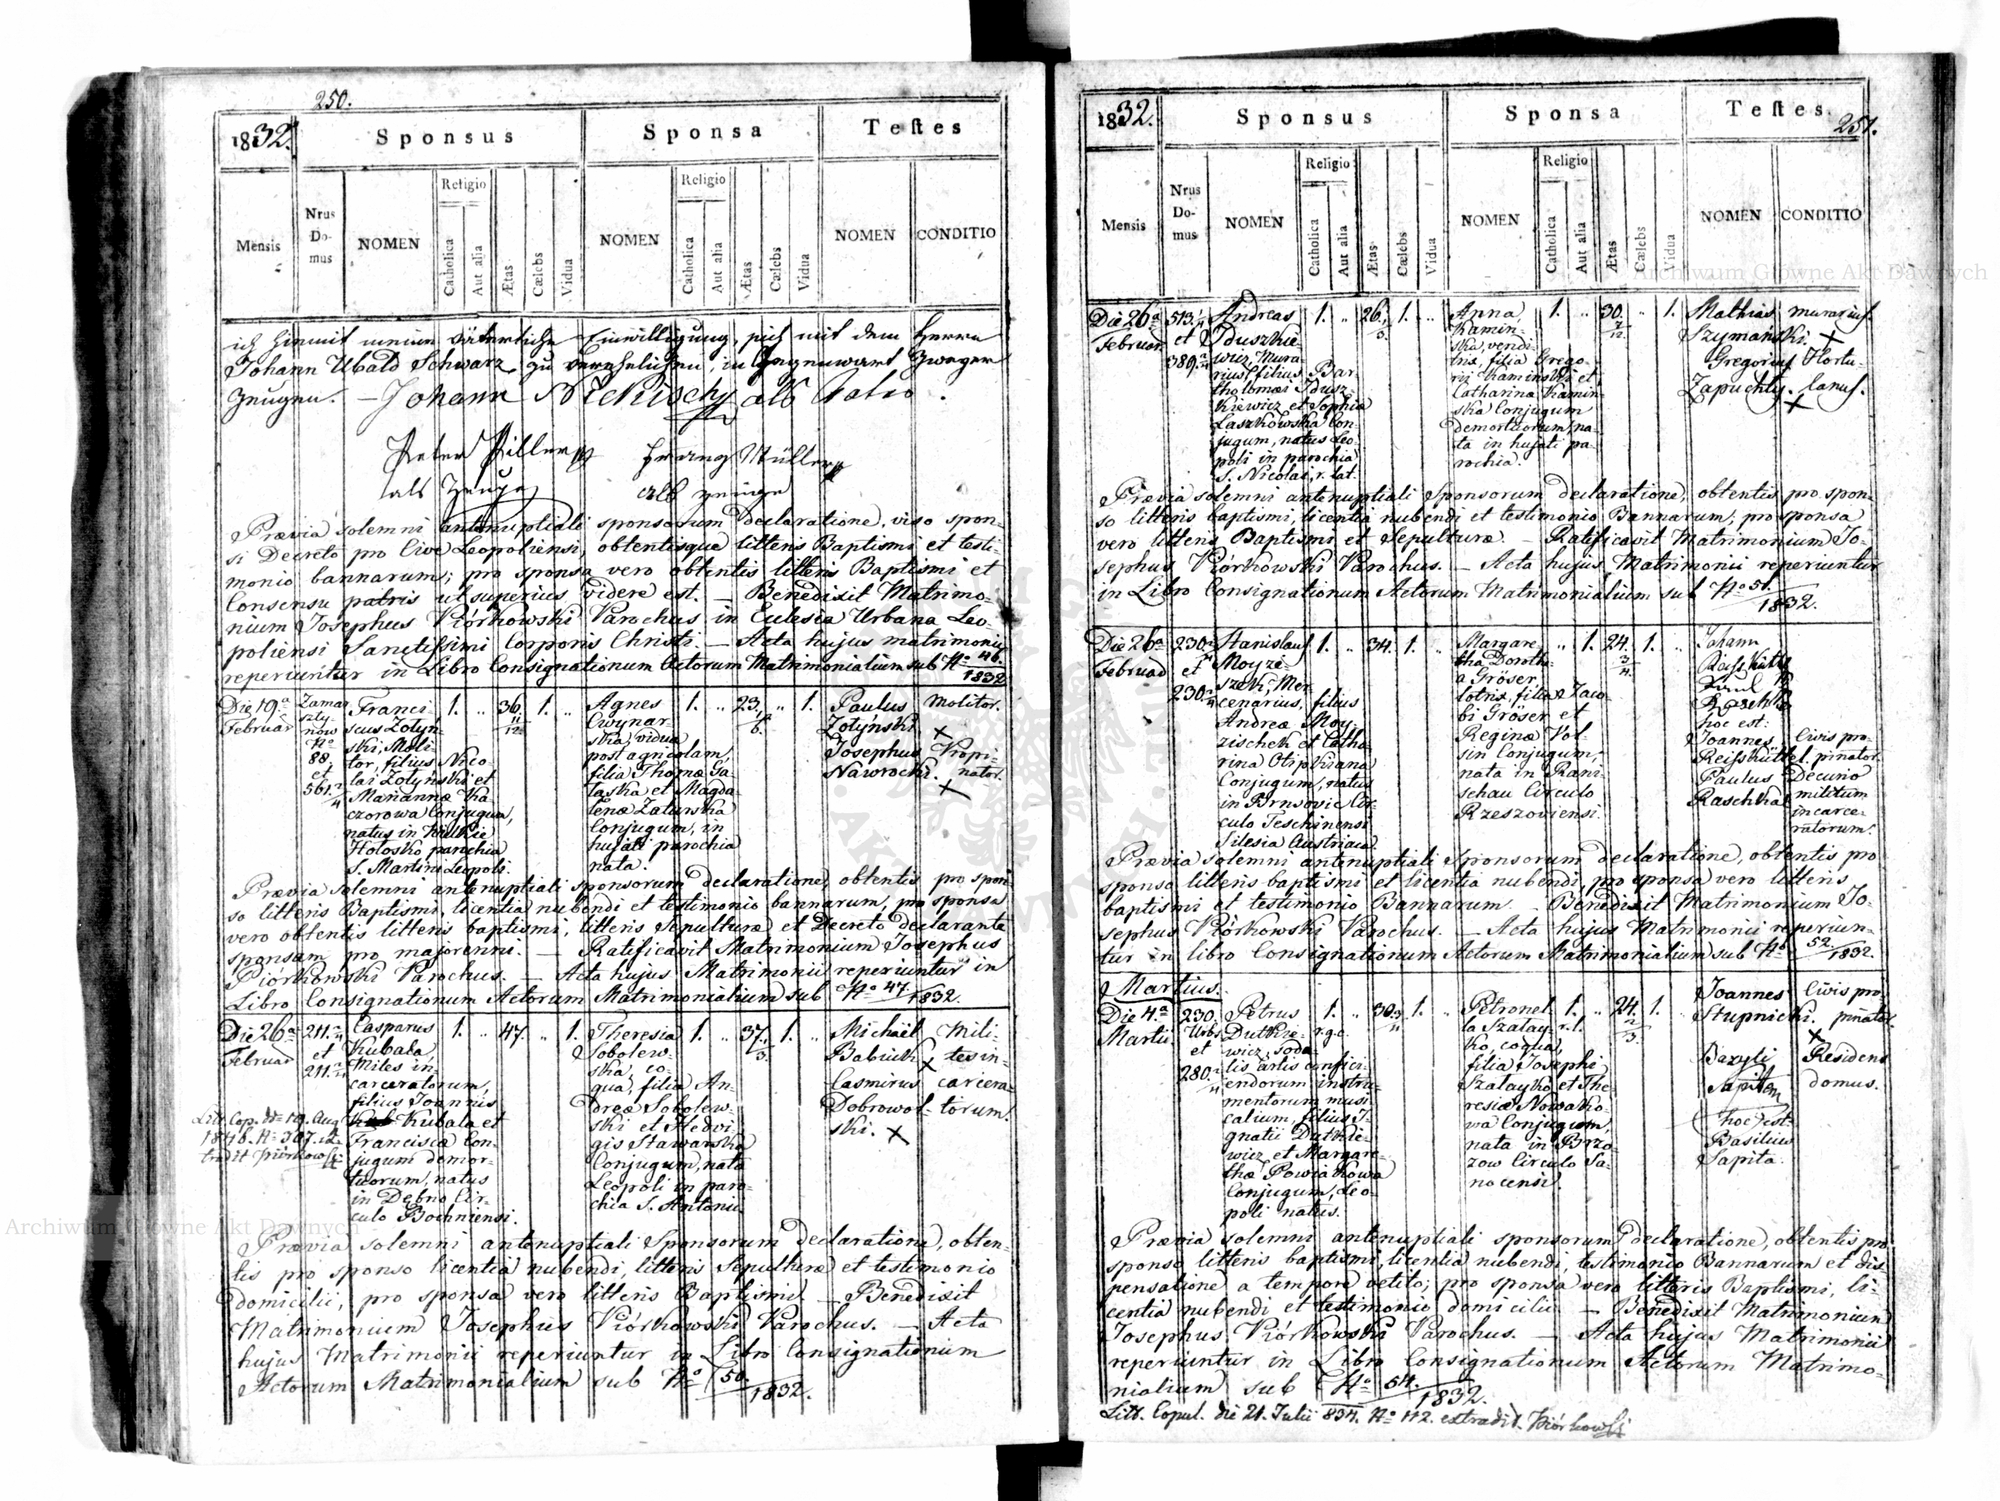 250.
1832.
Sponsus
Sponsa
Testes
Mensis
Nrus Domus
NOMEN
Religio
Catholica
Aut alia
Ætas
Cælebs
Vidua
NOMEN
Religio
Catholica
Aut alia
Ætas
Cælebs
Vidua
NOMEN
CONDITIO
ich hiemit meine väterliche Einwilligung, sich mit dem Herrn
Johann Ubald Schwarz zu verehelichen, in Gegenwart zweyer
Zeugen. — Johann
Peter Piller
als Zeuge
Franz Müller
als Zeuge
Prævia solemni antenuptiali sponsorum declaratione, viso spon-
si Decreto pro Cive Leopoliensi, obtentisque litteris Baptismi et testi-
monio bannarum; pro sponsa vero obtentis litteris Baptismi et
Consensu patris ut superius videre est. — Benedixit Matrimo-
nium Josephus Piórkowski Parochus in Ecclesia Urbana Leo-
poliensi Sanctissimi Corporis Christi. — Acta hujus matrimonii
reperiuntur in Libro Consignationum Actorum Matrimonialium sub No 46.
1832
Die 19a
Februar
Zamar
sty-
now
No
88,
et
561.
Franci-
scus Zotyń-
ski, Moli-
tor, filius Nico-
lai Zotyński et
Mariannæ Ka-
czorowa Conjugum,
natus in Wielkie
Hołosko parochia
S. Martini Leopoli.
1. „ 36. 11/12 1. „
Agnes
Cwynar-
ska, vidua
post agricolam,
filia Thomæ Ga-
laska et Magda-
lenæ Zaturska
Conjugum, in
hujati parochia
nata.
1. „ 23. „ 1.
Paulus
Zotyński
Josephus
Nawrocki.
Molitor.
×
Propi-
nator.
×
Prævia solemni antenuptiali sponsorum declaratione, obtentis pro spon-
so litteris Baptismi, licentia nubendi et testimonio bannarum, pro sponsa
vero obtentis litteris baptismi, litteris Sepulturæ et Decreto declarante
sponsam pro majorenni. — Ratificavit Matrimonium Josephus
Piórkowski Parochus. — Acta hujus Matrimonii reperiuntur in
Libro Consignationum Actorum Matrimonialium sub No 47.
1832.
Die 26a
Februar
211.
et
211.
Casparus
Kubala,
Miles in-
carceratorum,
filius Joannis
Kubala et
Franciscæ Con-
jugum demor-
tuorum, natus
in Dębno Cir-
culo Bochniensi.
1. „ 47. „ 1.
Theresia
Sobolew-
ska, co-
qua, filia An-
dreæ Sobolew-
ski et Hedvi-
gis Stawarska
Conjugum, nata
Leopoli in paro-
chia S. Antonii.
1. „ 37. 1. „
Michaël
Babiuk
Casimirus
Dobrowol-
ski. ×
Mili-
tes in-
carcera-
torum.
Litt. Cop. die 19. Aug
1846. No 307. ex-
tradit Piórkowski
Prævia solemni antenuptiali Sponsorum declaratione, obten-
tis pro sponso licentia nubendi, litteris Sepulturæ et testimonio
domicilii, pro sponsa vero litteris Baptismi. — Benedixit
Matrimonium Josephus Piórkowski Parochus. — Acta
hujus Matrimonii reperiuntur in Libro Consignationum
Actorum Matrimonialium sub No 50.
1832.
1832.
Sponsus
Sponsa
Testes.
251.
Mensis
Nrus Domus
NOMEN
Religio
Catholica
Aut alia
Ætas
Cælebs
Vidua
NOMEN
Religio
Catholica
Aut alia
Ætas
Cælebs
Vidua
NOMEN
CONDITIO
Die 26a
Februar
513.
et
389.
Andreas
Dduszkie-
wicz, Mura-
rius, filius Bar-
tholomæi Ddusz-
kiewicz et Sophia
Laszkowska Con-
jugum, natus Leo-
poli in parochia
S. Nicolai, r. lat.
1. „ 26. 1. „
Anna
Kamin-
ska, vendi-
trix, filia Grego-
rii Kaminski et
Catharina Kamin-
ska Conjugum
demortuorum, na-
ta in hujati pa-
rochia.
1. „ 30. 7/12 „ 1.
Mathias
Szymański.
Gregorius
Zapuchly.
murarius.
×
Hortu-
lanus.
×
Prævia solemni antenuptiali Sponsorum declaratione, obtentis pro spon-
so litteris baptismi, licentia nubendi et testimonio Bannarum, pro sponsa
vero litteris Baptismi et Sepulturæ. — Ratificavit Matrimonium Jo-
sephus Piórkowski Parochus. — Acta hujus Matrimonii reperiuntur
in Libro Consignationum Actorum Matrimonialium sub No 51.
1832.
Die 26a
Februar
230.
et
230.
Stanislaus
Moyze-
szek, Mer-
cenarius, filius
Andreæ Moy-
zischek et Catha-
rina Otipkiana
Conjugum, natus
in Brusovic Cir-
culo Teschinensi
Silesia Austriaca.
1. „ 34. 1. „
Margare-
tha Doroth-
a Gröser,
lotrix, filia Jaco-
bi Gröser et
Reginæ Vol-
sin Conjugum,
nata in Rani-
schau Circulo
Rzeszoviensi.
„ 1. 24. 3/4 1. „
Johann
Reiskütl
Paul
Raschka
hoc est:
Joannes
Reiskütl.
Paulus
Raschka
Civis pro-
pinator
Decurio
militum
incarce-
ratorum.
Prævia solemni antenuptiali Sponsorum declaratione, obtentis pro
sponso litteris baptismi et licentia nubendi, pro sponsa vero litteris
baptismi et testimonio Bannarum. — Benedixit Matrimonium Jo-
sephus Piórkowski Parochus. — Acta hujus Matrimonii reperiun-
tur in libro Consignationum Actorum Matrimonialium sub No 52.
1832.
Martius.
Die 4a
Martii
230.
Urb.
et
280.
Petrus
Dutkie-
wicz, soda-
lis artis confici-
endorum instru-
mentorum musi-
calium, filius I-
gnatii Dutkie-
wicz et Margare-
thæ Powiakowa
Conjugum, Leo-
poli natus.
1. r.g.c. „ 30. 1. „
Petronel-
la Szalay-
ko, coqua,
filia Josephi
Szalayko et The-
resiæ Nowako-
wa Conjugum,
nata in Brzo-
zow Circulo Sa-
nocensi.
1. r.l. „ 24. 2/3 1.
Joannes
Stupnicki.
×
Bazyli
Sapita
hoc est
Basilius
Sapita.
Civis pro-
pinator
Residens
domus.
Prævia solemni antenuptiali sponsorum declaratione, obtentis pro
sponso litteris baptismi, licentia nubendi, testimonio Bannarum et dis-
pensatione a tempore vetito; pro sponsa vero litteris Baptismi, li-
centia nubendi et testimonio domicilii — Benedixit Matrimonium
Josephus Piórkowski Parochus. — Acta hujus Matrimonii
reperiuntur in Libro Consignationum Actorum Matrimo-
nialium sub No 54.
1832.
Litt. Copul. die 21. Julii 834. No 112. extradit. Piórkowski
Archiwum Główne Akt Dawnych
Archiwum Główne Akt Dawnych